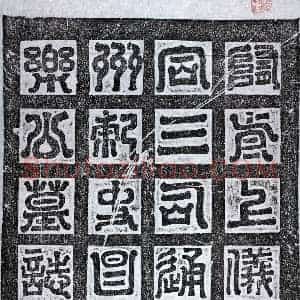 上儀
同三司通
州刺史昌
樂公墓誌